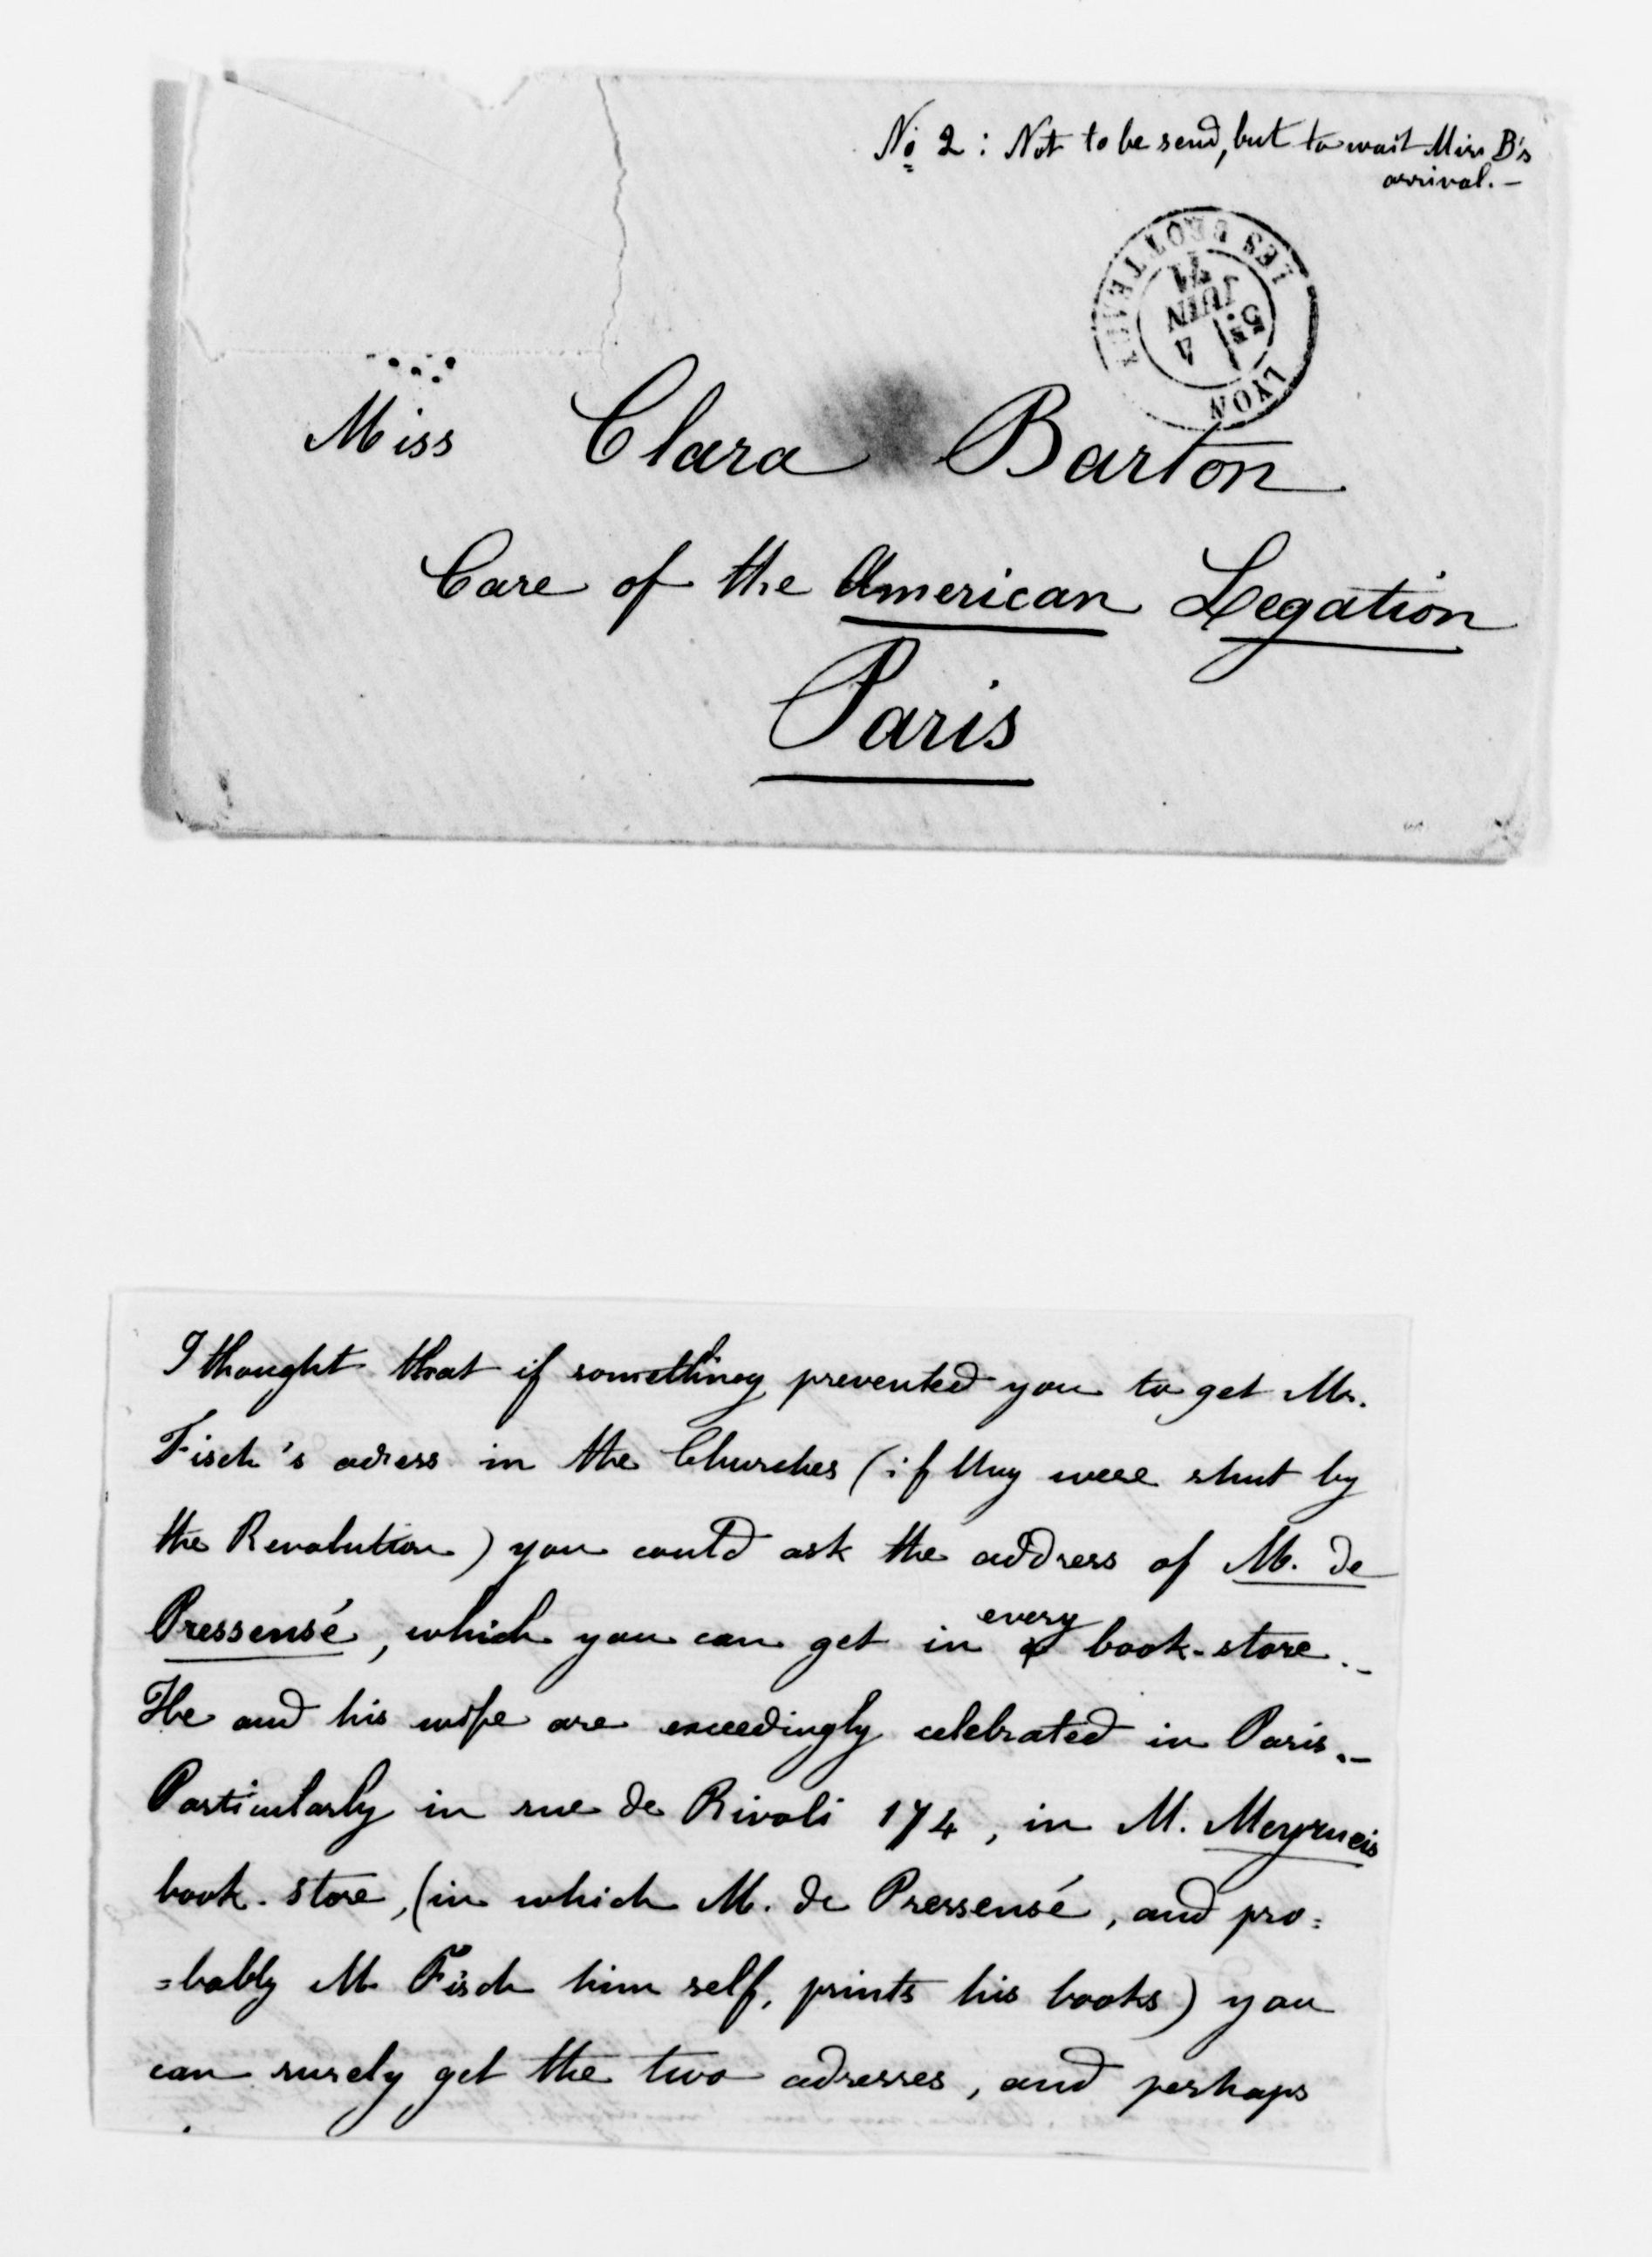 No 2: Not to be send, but to wait Miss B's
arrival. –
LYON LES BROTTEAUX
5E
4
JUIN
71
Miss Clara Barton
Care of the American Legation
Paris
I thought that if something prevented you to get Mr.
Fisch's adress in the Churches (if they were shut by
the Revolution) you could ask the address of M. de
Pressensé, which you can get in every book-store. –
He and his wife are exceedingly celebrated in Paris. –
Particularly in rue de Rivoli 174, in M. Meyrueis
book-store, (in which M. de Pressensé, and pro=
=bably M. Fisch him self, prints his books) you
can surely get the two adresses, and perhaps